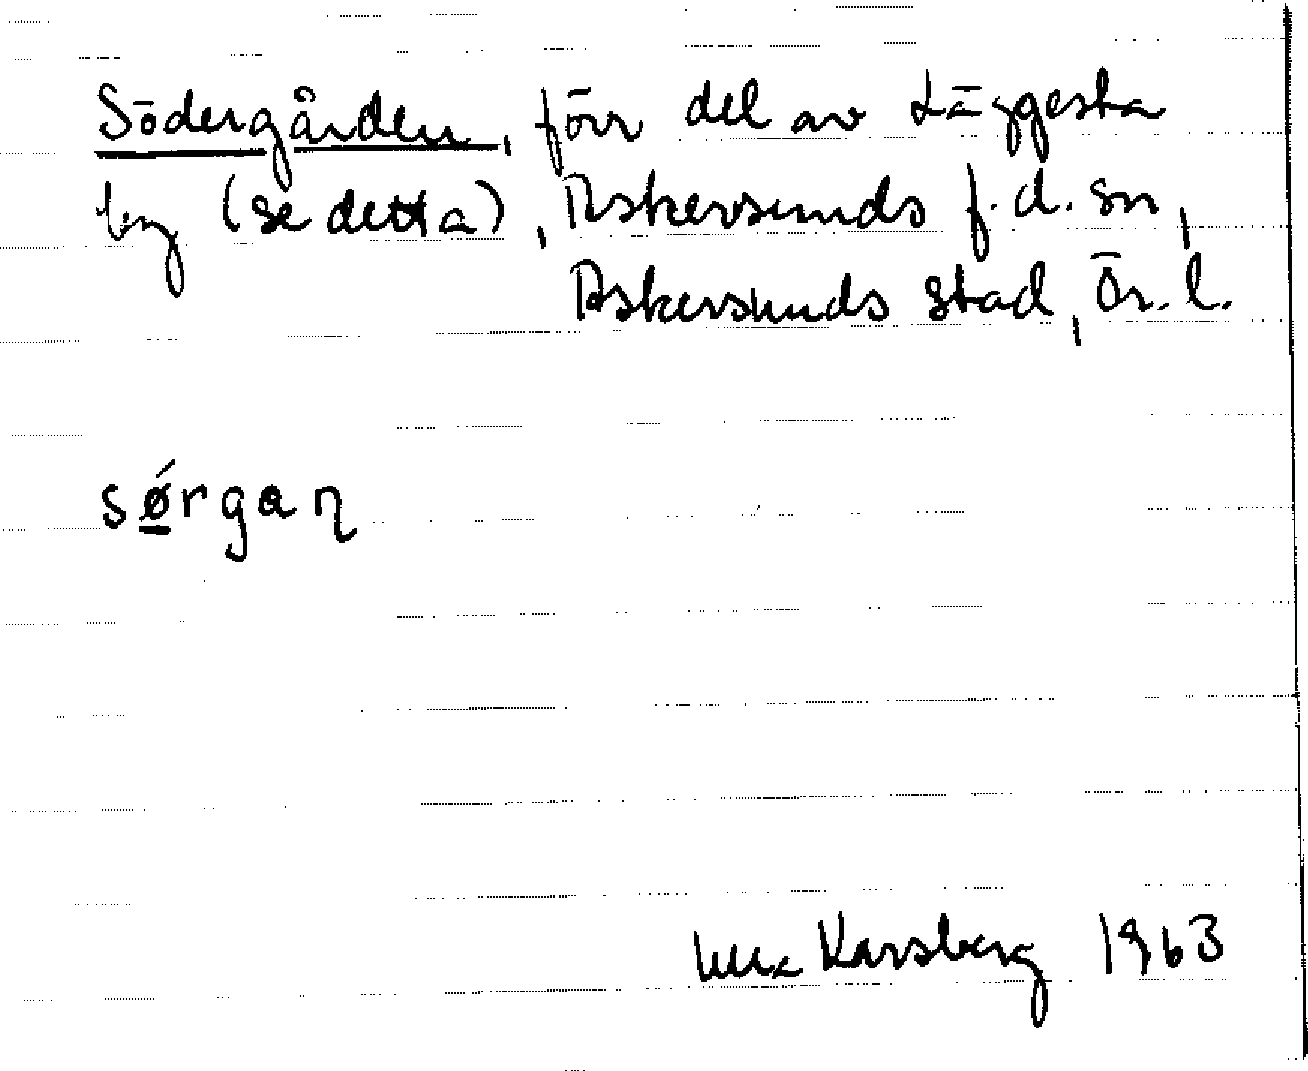 Södergården, förr del av Läggesta
by (se detta), Askersunds f.d. sn,
Askersunds stad, Ör. l.
sǿrgaɳ
Karsberg 1963